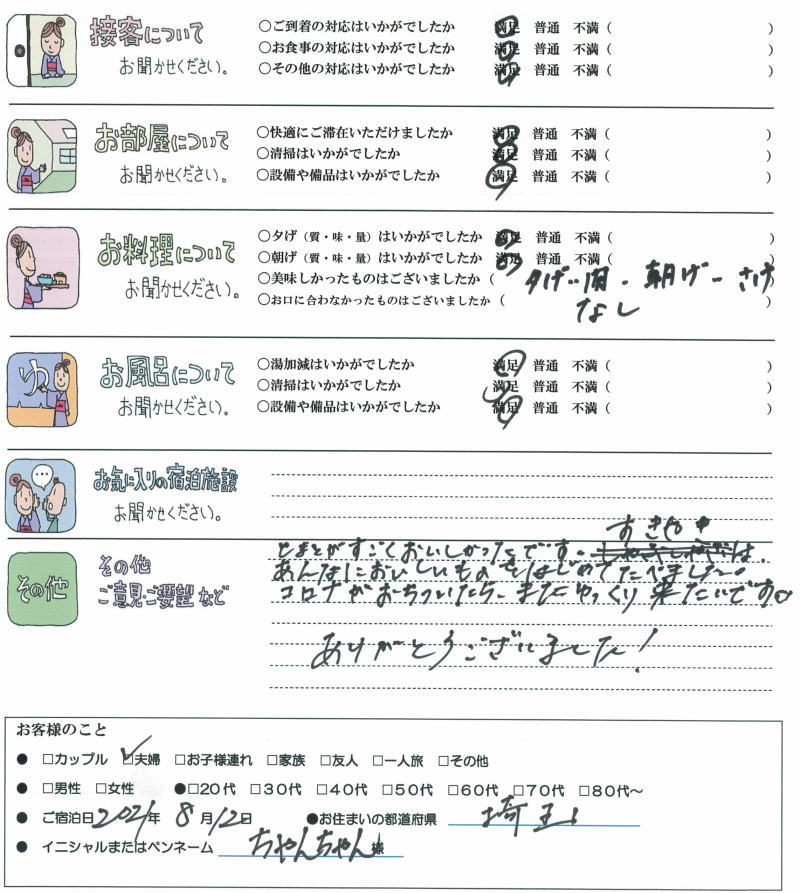 接客について
お聞かせください。
○ご到着の対応はいかがでしたか 満足 普通 不満 （ ）
○お食事の対応はいかがでしたか 満足 普通 不満 （ ）
○その他の対応はいかがでしたか 満足 普通 不満 （ ）
お部屋について
お聞かせください。
○快適にご滞在いただけましたか 満足 普通 不満 （ ）
○清掃はいかがでしたか 満足 普通 不満 （ ）
○設備や備品はいかがでしたか 満足 普通 不満 （ ）
お料理について
お聞かせください。
○夕げ（質・味・量）はいかがでしたか 満足 普通 不満 （ ）
○朝げ（質・味・量）はいかがでしたか 満足 普通 不満 （ ）
○美味しかったものはございましたか （ 夕げ 朝げ-さけ ）
○お口に合わなかったものはございましたか （ なし ）
ゆ
お風呂について
お聞かせください。
○湯加減はいかがでしたか 満足 普通 不満 （ ）
○清掃はいかがでしたか 満足 普通 不満 （ ）
○設備や備品はいかがでしたか 満足 普通 不満 （ ）
お気に入りの宿泊施設
お聞かせください。
その他
その他
ご意見・ご要望など
すきやき
とまとがすごくおいしかったです。は、
あんなにおいしいものをはじめてたべました。
コロナがおちついたら、またゆっくり来たいです。
ありがとうございました！
お客様のこと
● □カップル □夫婦 □お子様連れ □家族 □友人 □一人旅 □その他
● □男性 □女性 ●□20代 □30代 □40代 □50代 □60代 □70代 □80代～
● ご宿泊日 2021年 8月12日 ●お住まいの都道府県 埼玉
● イニシャルまたはペンネーム ちゃんちゃん 様